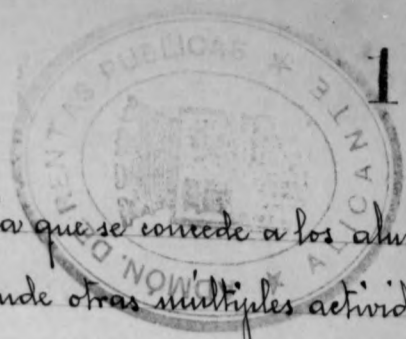 1
ADMÓN. DE RENTAS PUBLICAS * ALICANTE *
a que se concede a los alu
ende otras múltiples activid